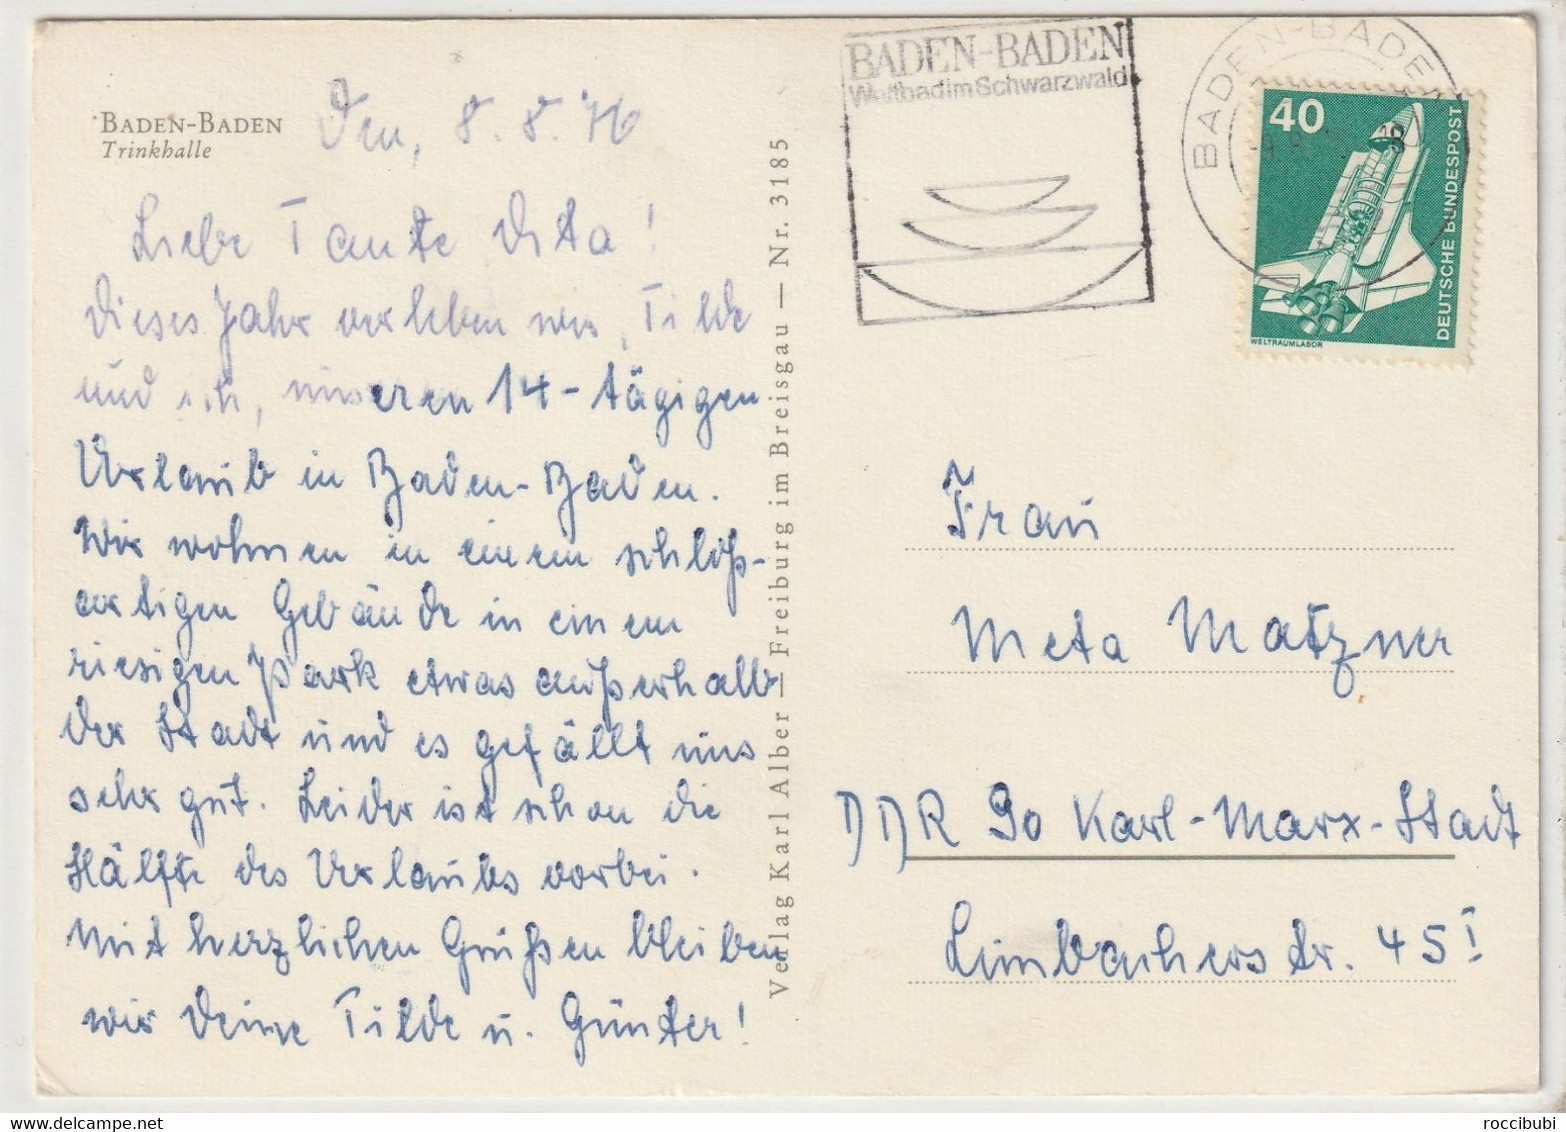 BADEN-BADEN
Trinkhalle
Den, 8.8.76
Liebe Tante Dita!
dieses Jahr verleben wir, Tilde
und ich, unseren 14-tägigen
Urlaub in Baden-Baden.
Wir wohnen in einem schloß-
artigen Gebäude in einem
riesigen Park etwas außerhalb
der Stadt und es gefällt uns
sehr gut. Leider ist schon die
Hälfte des Urlaubs vorbei.
Mit herzlichen Grüßen bleiben
wir Deine Tilde u. Günter!
Verlag Karl Alber — Freiburg im Breisgau — Nr. 3185
BADEN-BADEN
Weltbad im Schwarzwald
BADEN-BADEN
40
DEUTSCHE BUNDESPOST
WELTRAUMLABOR
Frau
Meta Matzner
DDR 90 Karl-Marx-Stadt
Limbacherstr. 45 I
roccibubi